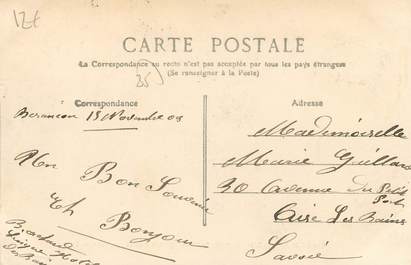 12€
CARTE POSTALE
La Correspondance au recto n'est pas acceptée par tous les pays étrangers
(Se renseigner à la Poste)
25
Correspondance
Adresse
Besançon 15 Novembre 08
Un
Bon Souvenir
Et Bonjour
Mademoiselle
Marie
30 Avenue Du Petit
Port
Aixe Les Bains
Savoie